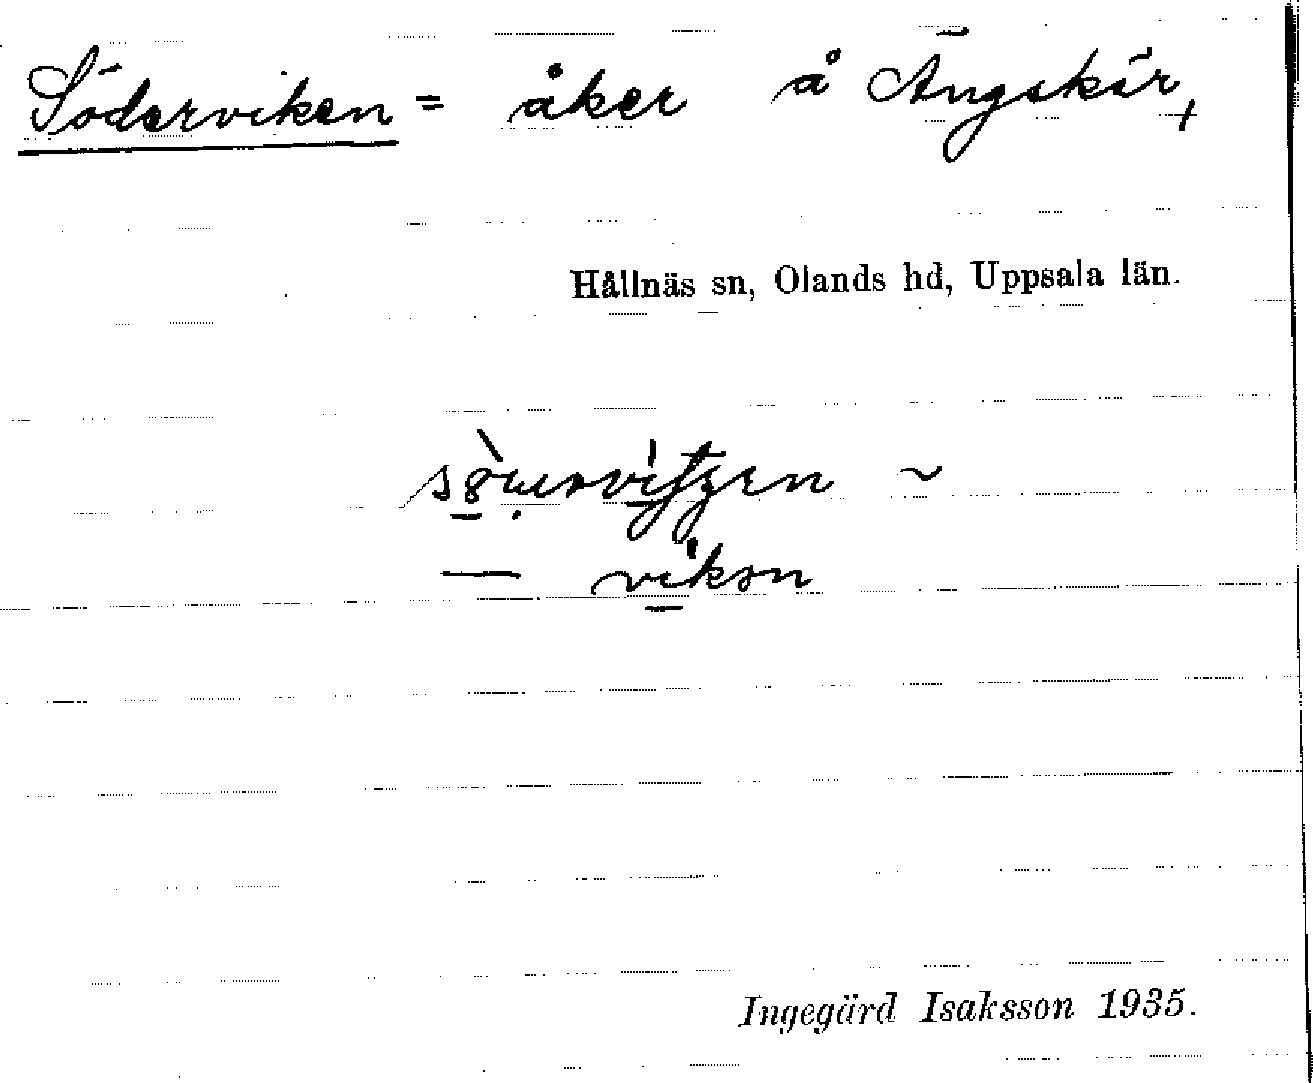 Söderviken = åker å Ängskär,
Hållnäs sn, Olands hd, Uppsala län.
— vikən
Ingegärd Isaksson 1935.